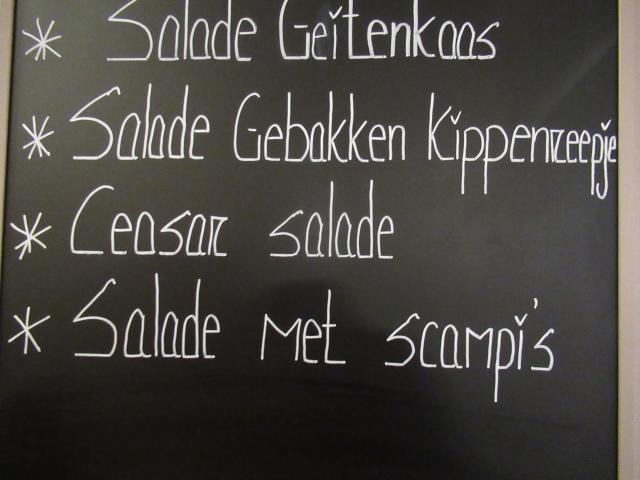 * Salade Geitenkaas
* Salade Gebakken Kippenreepje
* Ceasar salade
* Salade met scampi's